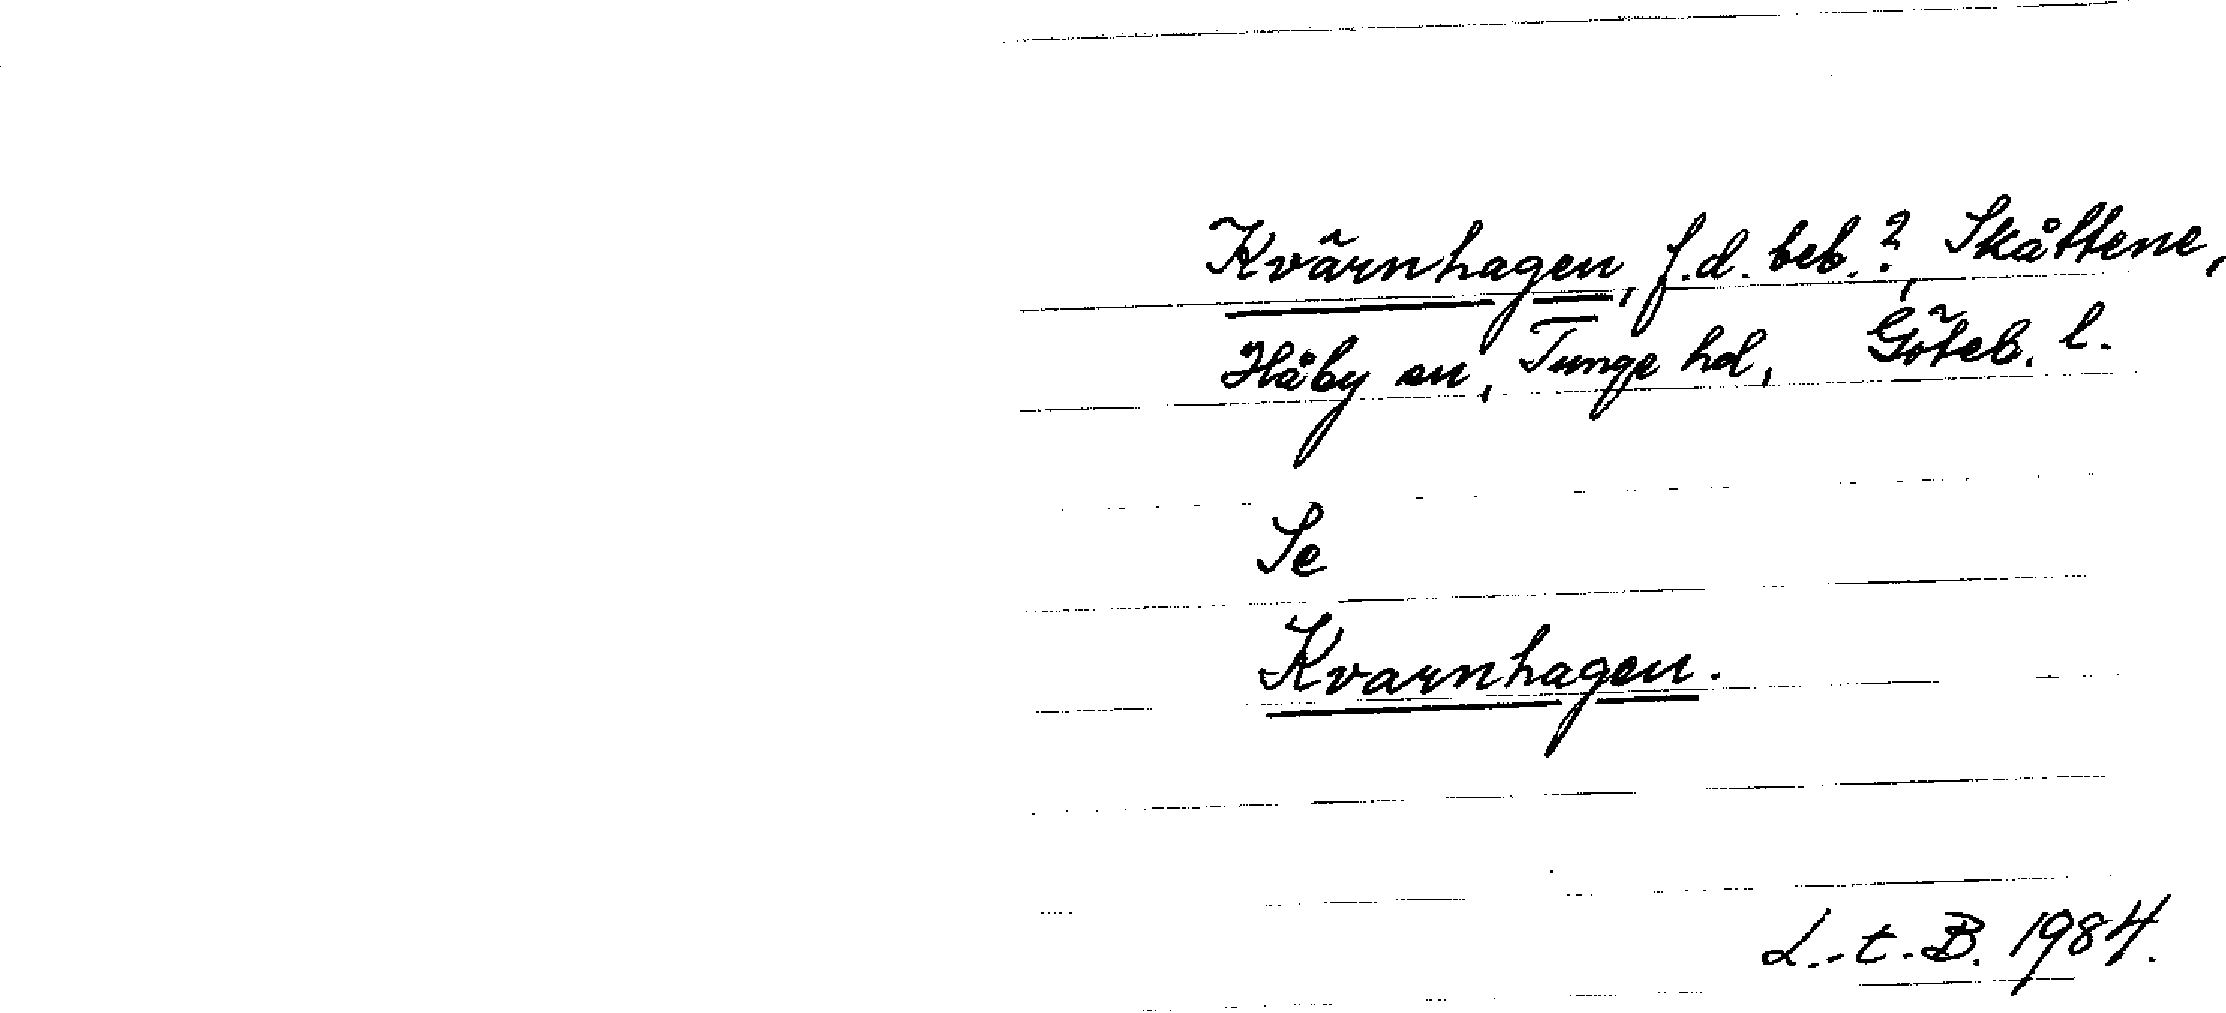 Kvärnhagen, f.d. beb.?, Skåttene,
Håby sn, Tunge hd, Göteb. l.
Se
Kvarnhagen.
L.-t. B. 1984.